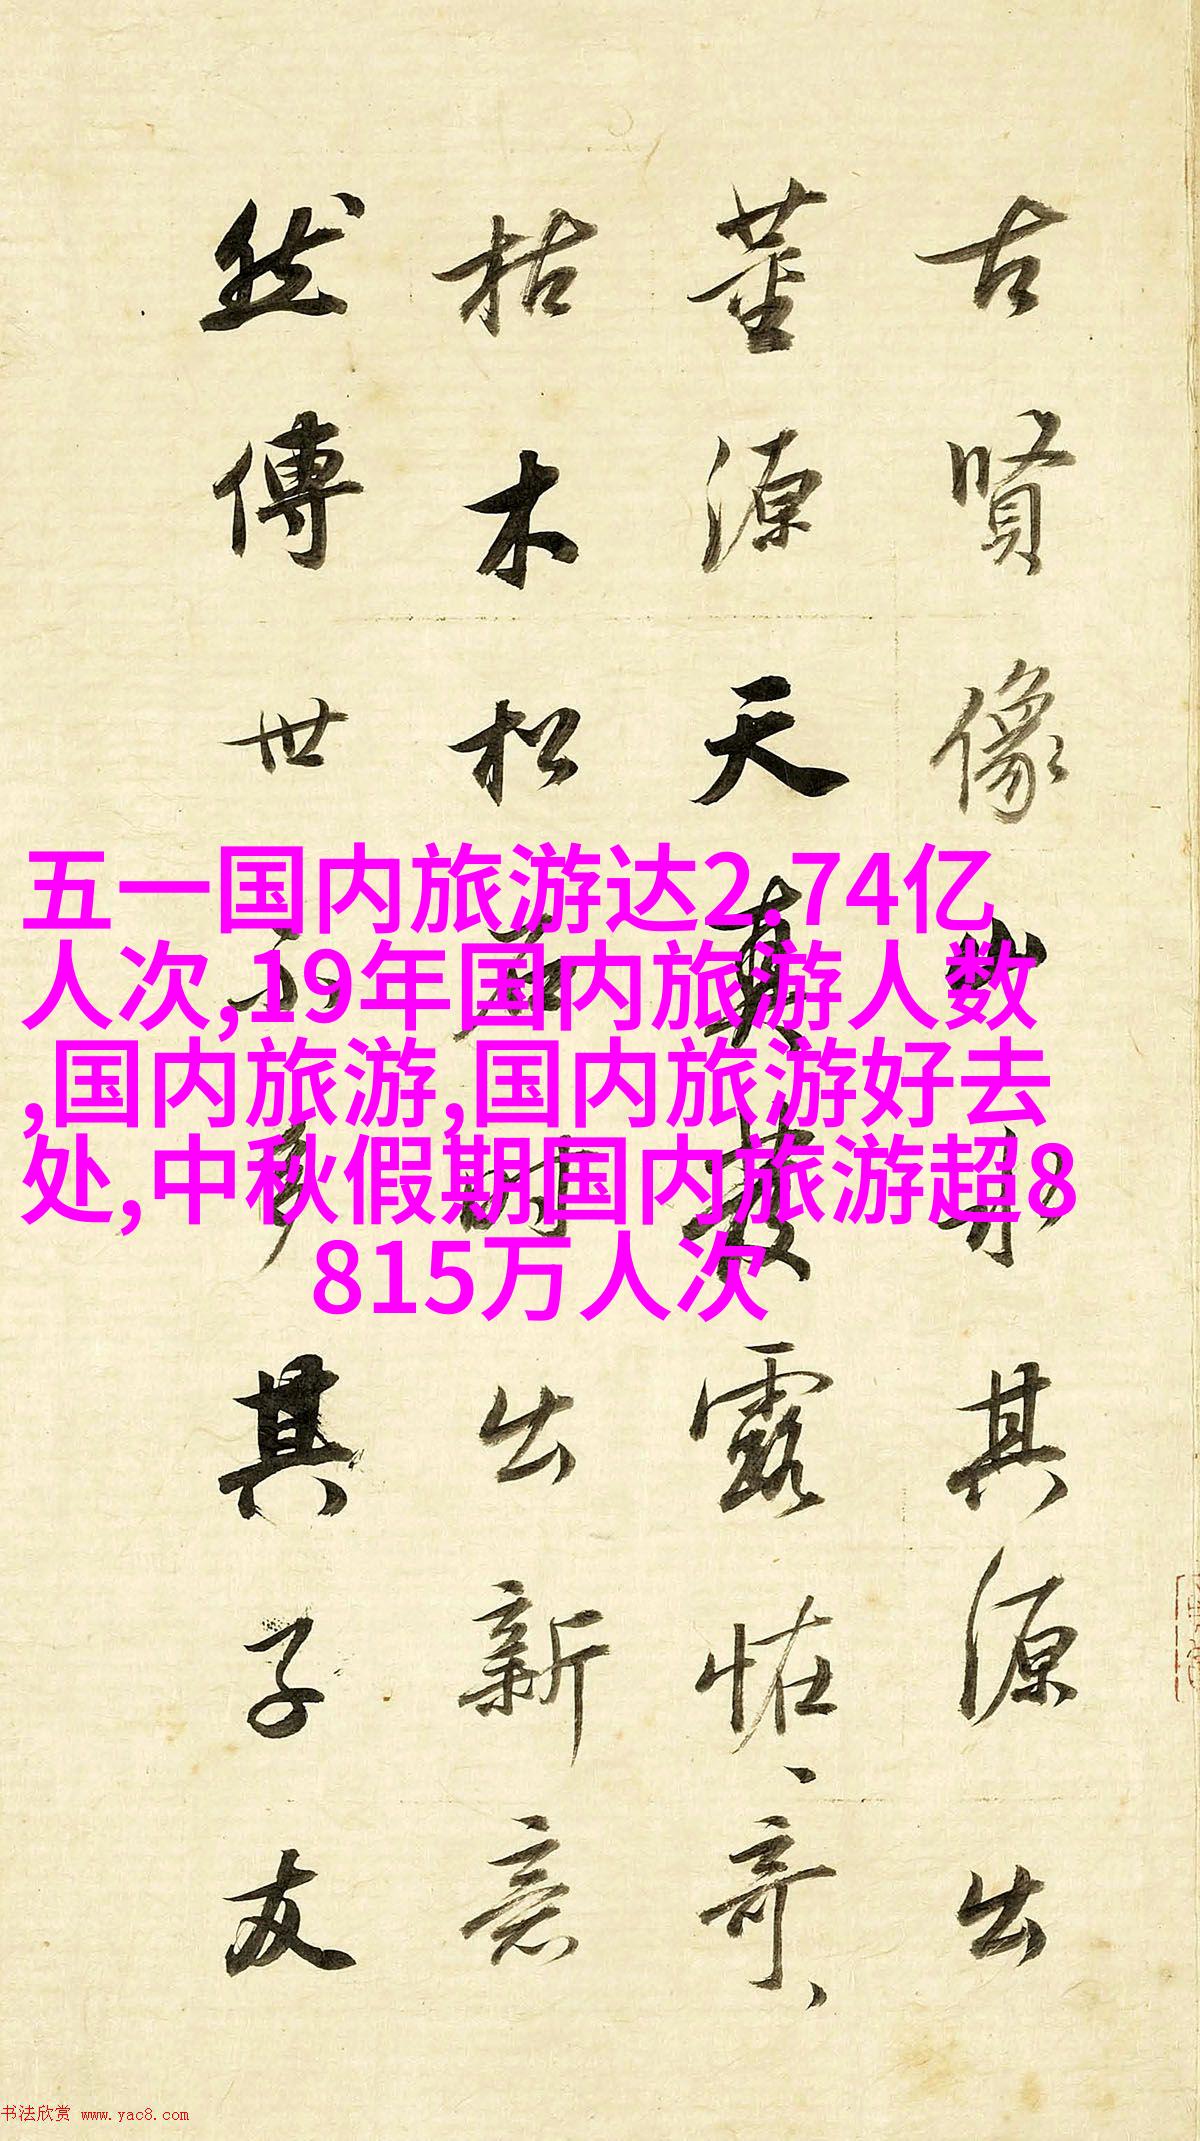 古賢像山水其源出
董源天真發露恠奇
枯木松石時出新意
然傳世不多其子友
五一国内旅游达2.74亿
人次,19年国内旅游人数
,国内旅游,国内旅游好去
处,中秋假期国内旅游超8
815万人次
书法欣赏 www.yac8.com